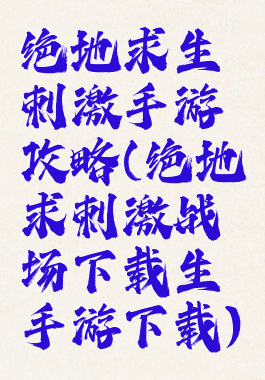 绝地求生
刺激手游
攻略(绝地
求刺激战
场下载生
手游下载)